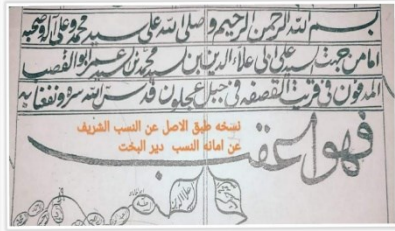 بسم الله الرحمن الرحيم وصلى الله على سيد محمد وعلى اله وصحبه
امامن جهت سيد على ابى علاء الدين بن سيد محمد بن سيد عمر ابوالفصا
المدفون فى قريت القصفه فى جبل عجلون قدس الله سره ونفعنا به
نسخه طبق الاصل عن النسب الشريف
عن امانه النسب دير البخت
فهو اعقب
علاءالدين